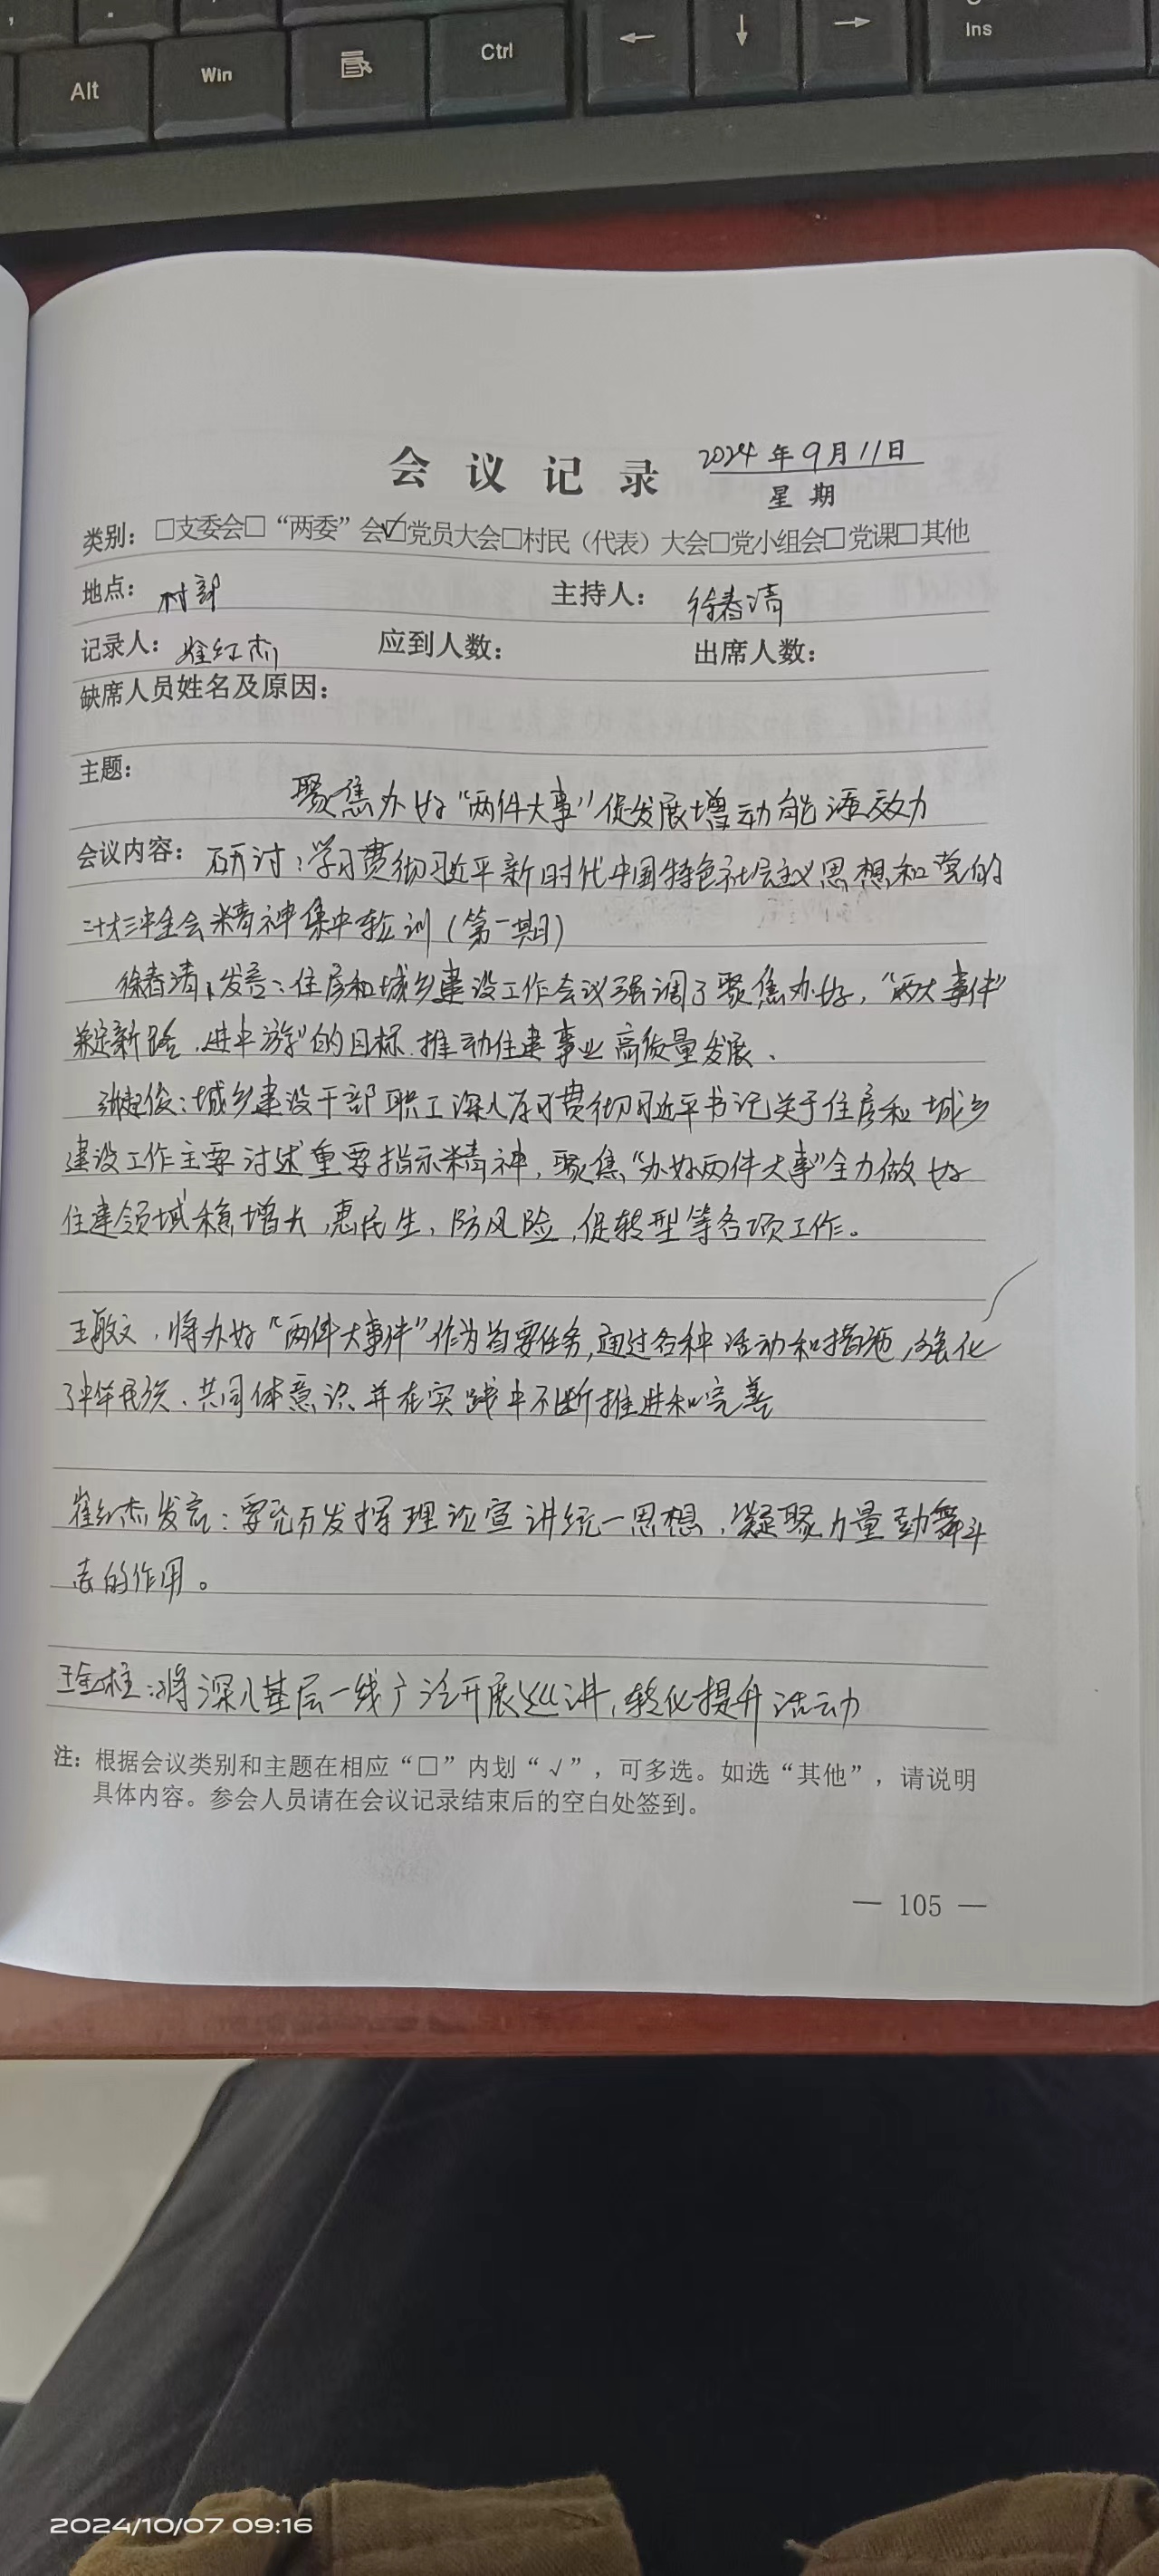 Alt
Win
Ctrl
←
↓
→
Ins
会议记录
2024年9月11日
星期
类别：□支委会□“两委”会☑党员大会□村民（代表）大会□党小组会□党课□其他
地点：村部 主持人：徐春清
记录人：红杰 应到人数： 出席人数：
缺席人员姓名及原因：
主题：
聚焦办好“两件大事”促发展增动能添效力
会议内容：研讨：学习贯彻习近平新时代中国特色社会主义思想和党的
二十大三中全会精神集中轮训（第一期）
徐春清、发言：住房和城乡建设工作会议强调了聚焦办好，“两大事件”
新路，进中游”的目标.推动住建事业高质量发展、
俊：城乡建设干部职工深入学习贯彻习近平书记关于住房和城乡
建设工作主要讨述重要指示精神，聚焦“办好两件大事”全力做好
住建领域稳增大，惠民生，防风险，促转型等各项工作。
王敏文，将办好“两件大事件”作为首要任务，通过各种活动和措施，强化
了中华民族、共同体意识并在实践中不断推进和完善
崔红杰发言：要充分发挥理论宣讲统一思想，凝聚力量鼓舞斗
志的作用。
王金柱：将深入基层一线广泛开展巡讲，转化提升活动
注：根据会议类别和主题在相应“□”内划“√”，可多选。如选“其他”，请说明
具体内容。参会人员请在会议记录结束后的空白处签到。
— 105 —
2024/10/07 09:16